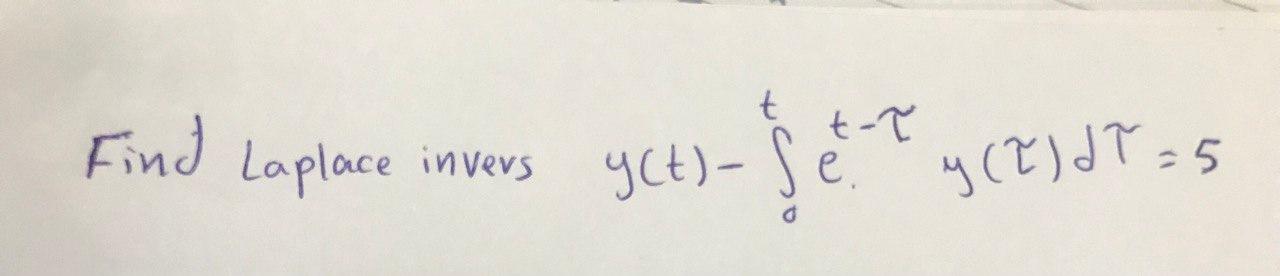 Find Laplace invers y(t) - ∫₀ᵗ e^{t-τ} y(τ)dτ = 5